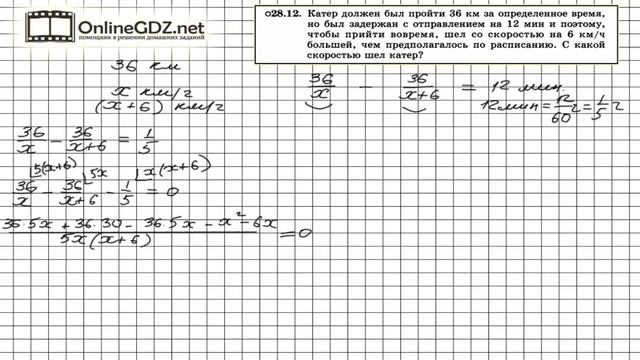 OnlineGDZ.net
помощник в решении домашних заданий
28.12. Катер должен был пройти 36 км за определенное время,
но был задержан с отправлением на 12 мин и поэтому,
чтобы прийти вовремя, шел со скоростью на 6 км/ч
большей, чем предполагалось по расписанию. С какой
скоростью шел катер?
36 км
x км/ч
(x+6) км/ч
36/x - 36/(x+6) = 12 мин.
12мин = 12/60 ч = 1/5 ч
36/x - 36/(x+6) = 1/5
5(x+6) 5x x(x+6)
36/x - 36/(x+6) - 1/5 = 0
(36·5x + 36·30 - 36·5x - x² - 6x)/(5x(x+6)) = 0